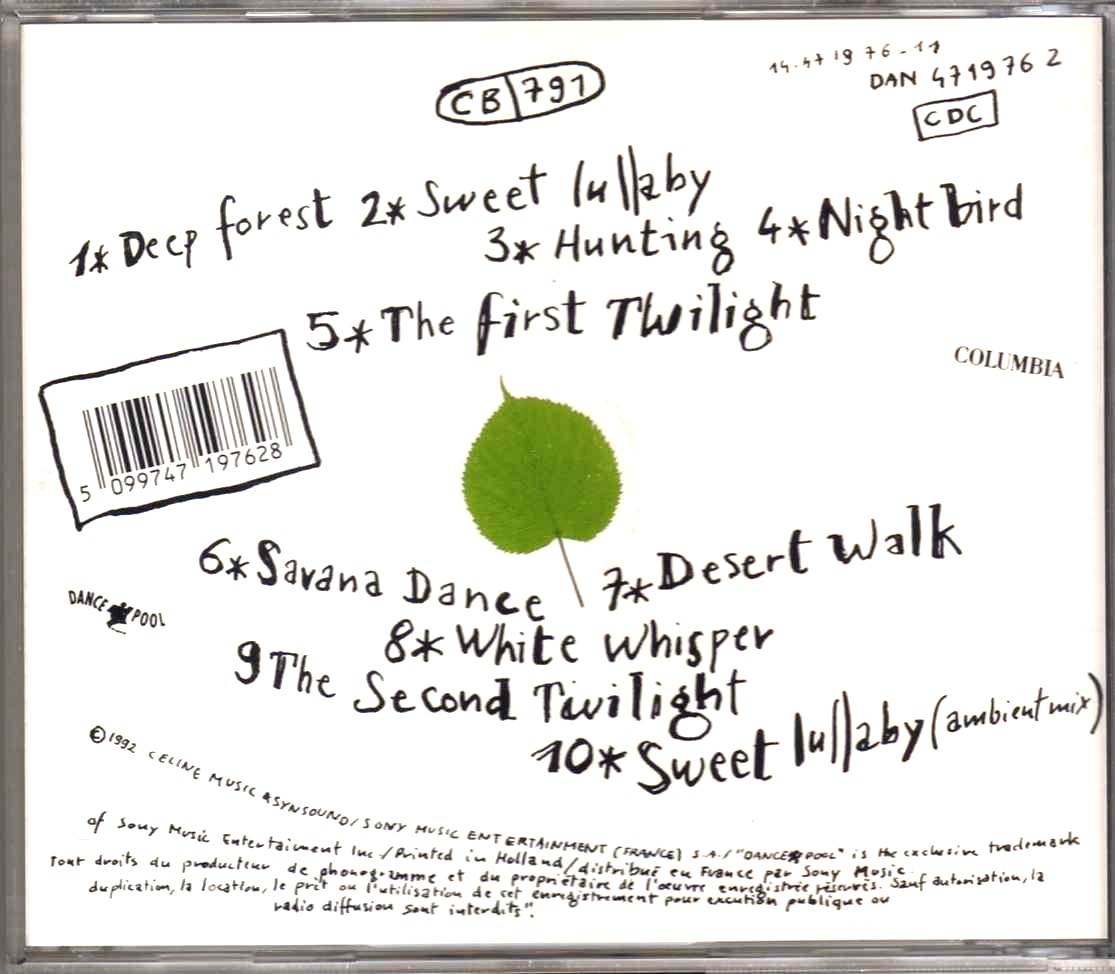 CB 791
14-471976-11
DAN 471976 2
CDC
1* Deep forest 2* Sweet lullaby
3* Hunting 4* Night bird
5* The first Twilight
COLUMBIA
5 099747 197628
6* Savana Dance 7* Desert Walk
DANCE POOL
8* White Whisper
9 The Second Twilight
10* Sweet lullaby (ambient mix)
©1992 CELINE MUSIC & SYNSOUND / SONY MUSIC ENTERTAINMENT (FRANCE) S.A. / "DANCE POOL" is the exclusive trademark
of Sony Music Entertaiment Inc / Printed in Holland / distribué en France par Sony Music.
Tout droits du producteur de phonogramme et du propriétaire de l'œuvre enregistrée réservés. Sauf autorisation, la
duplication, la location, le prêt ou l'utilisation de cet enregistrement pour excution publique ou
radio diffusion sont interdits".